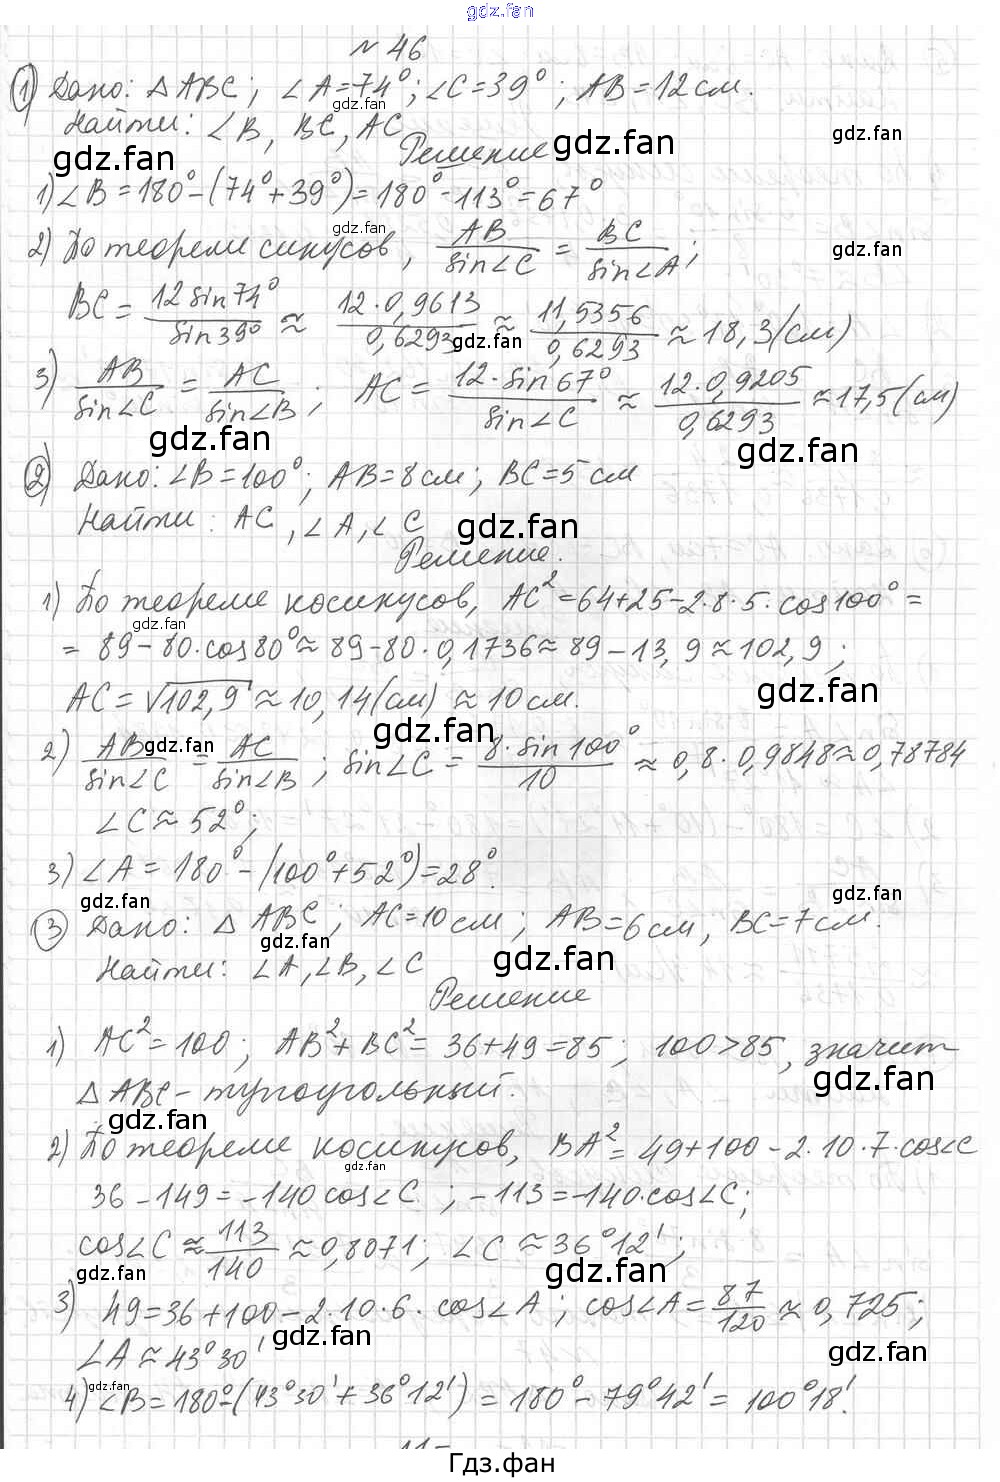 gdz.fan
№ 46
① Дано: △ABC; ∠A=74°; ∠C=39°; AB=12см.
gdz.fan
Найти: ∠B, BC, AC
gdz.fan gdz.fan gdz.fan
Решение
1) ∠B=180°-(74°+39°)=180°-113°=67°
gdz.fan
2) По теореме синусов, AB/sin∠C = BC/sin∠A;
gdz.fan
BC = 12 sin74°/sin39° ≈ 12·0,9613/0,6293 ≈ 11,5356/0,6293 ≈ 18,3(см)
gdz.fan
3) AB/sin∠C = AC/sin∠B; AC = 12·sin67°/sin∠C ≈ 12·0,9205/0,6293 ≈ 17,5(см)
gdz.fan gdz.fan
② Дано: ∠B=100°; AB=8см; BC=5см
Найти: AC, ∠A, ∠C
gdz.fan
Решение.
1) По теореме косинусов, AC²=64+25-2·8·5·cos100°=
gdz.fan
= 89-80·cos80°≈89-80·0,1736≈89-13,9≈102,9;
AC=√102,9≈10,14(см)≈10см.
gdz.fan gdz.fan
2) AB/sin∠C = AC/sin∠B; sin∠C = 8·sin100°/10 ≈ 0,8·0,9848≈0,78784
gdz.fan
∠C≈52°;
3) ∠A=180°-(100°+52°)=28°.
gdz.fan gdz.fan
③ Дано: △ABC; AC=10см; AB=6см, BC=7см.
gdz.fan gdz.fan
Найти: ∠A, ∠B, ∠C
Решение
1) AC²=100; AB²+BC²=36+49=85; 100>85, значит
gdz.fan
△ABC-тупоугольный.
gdz.fan
2) По теореме косинусов, BA²=49+100-2·10·7·cos∠C
gdz.fan
36-149=-140cos∠C; -113=-140·cos∠C;
cos∠C≈113/140≈0,8071; ∠C≈36°12';
gdz.fan gdz.fan
3) 49=36+100-2·10·6·cos∠A; cos∠A=87/120≈0,725;
gdz.fan
∠A≈43°30'
gdz.fan
gdz.fan
4) ∠B=180°-(43°30'+36°12')=180°-79°42'=100°18'.
Гдз.фан